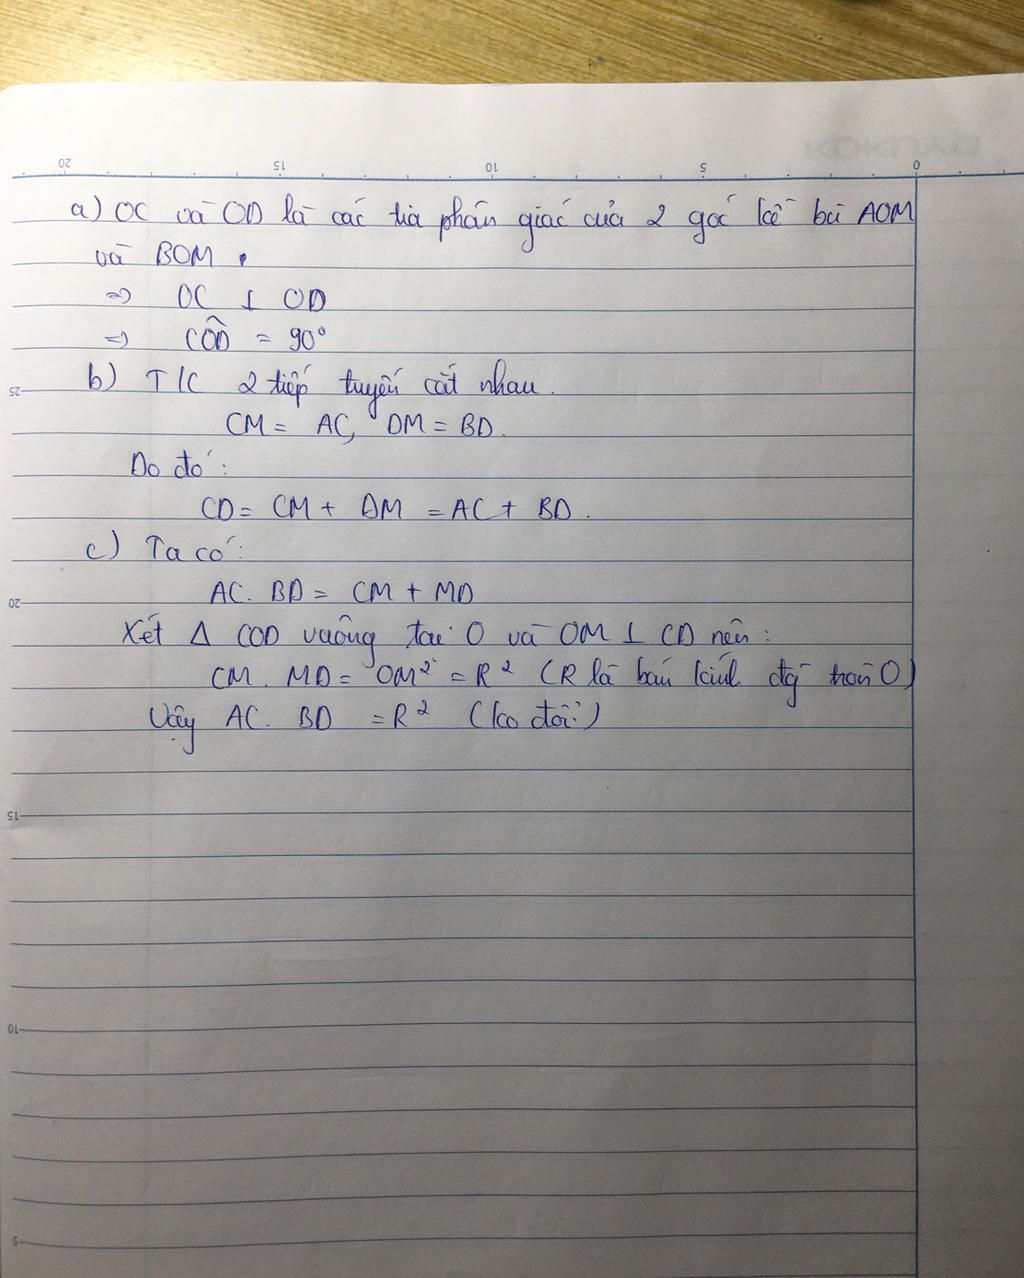 20 15 10 5 0
a) OC và OD là các tia phân giác của 2 góc kề bù AOM
và BOM.
=> OC ⊥ OD
=> CÔD = 90°
b) T/C 2 tiếp tuyến cắt nhau.
25
CM = AC, DM = BD.
Do đó:
CD = CM + DM = AC + BD.
c) Ta có:
AC. BD = CM + MD
20
Xét Δ COD vuông tại O và OM ⊥ CD nên:
CM. MD = OM² = R² (R là bán kính đg tròn O)
Vậy AC. BD = R² (ko đổi)
15
10
5